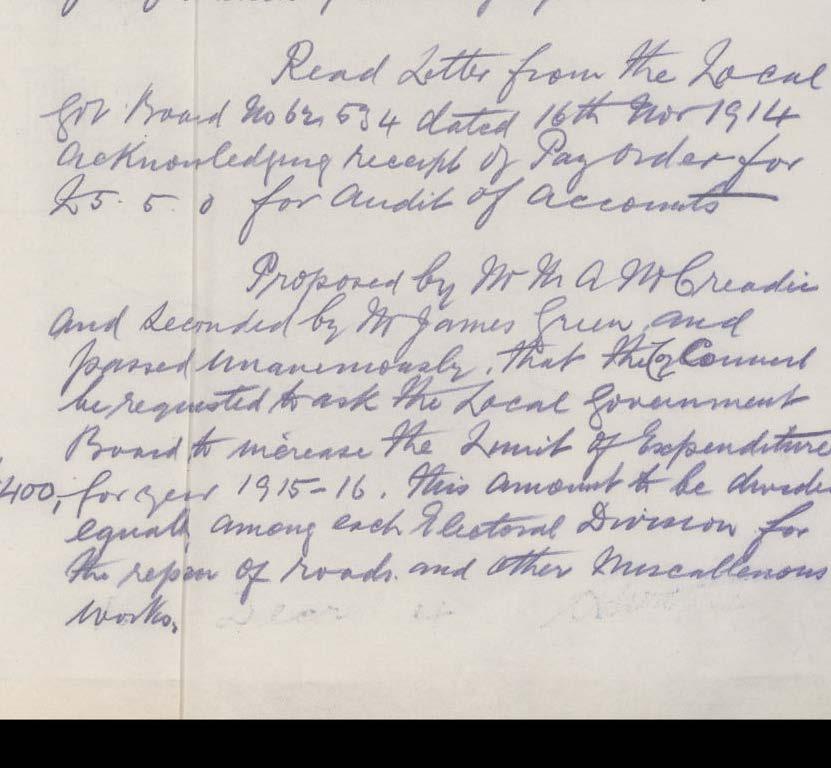 Read Letter from the Local
Gov Board No 62,534 dated 16th Nov 1914
Acknowledging receipt of Pay Order for
£5. 5. 0 for Audit of Accounts
Proposed by Mr M. A. McCreadie
and seconded by Mr James Green, and
passed unanimously, that the Co Council
be requested to ask the Local Government
Board to increase the Limit of Expenditure
400, for year 1915-16. this amount to be divided
equally among each Electoral Division for
the repair of roads and other Miscallenous
Works.